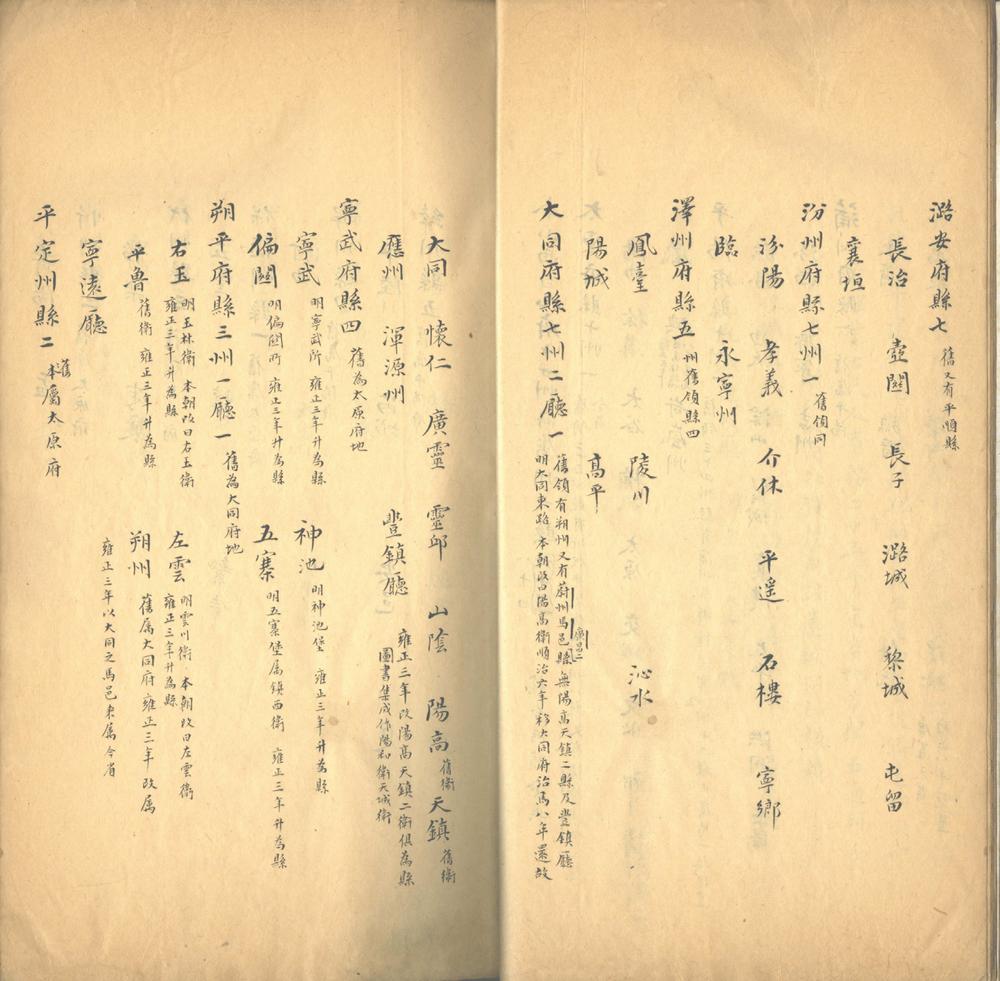 潞安府縣七 舊又有平順縣
長治 壺關 長子 潞城 黎城 屯留
襄垣
汾州府縣七州一 舊領同
汾陽 孝義 介休 平遥 石樓 寧鄉
臨 永寧州
澤州府縣五 州舊領縣四
鳳臺 陵川 沁水
陽城 高平
大同府縣七州二廳一 舊領有朔州又有蔚州馬邑廣昌二縣無陽高天鎮二縣及豊鎮廳
明大同東路 本朝改曰陽高衛順治六年移大同府治焉八年還故
大同 懷仁 廣靈 靈邱 山陰 陽高 舊衛 天鎮 舊衛
應州 渾源州 豊鎮廳 雍正三年改陽高天鎮二衛俱為縣
圖書集成作陽和衛天城衛
寧武府縣四 舊為太原府地
寧武 明寧武所 雍正三年升為縣 神池 明神池堡 雍正三年升為縣
偏關 明偏關所 雍正三年升為縣 五寨 明五寨堡属鎮西衛 雍正三年升為縣
朔平府縣三州一廳一 舊為大同府地
右玉 明玉林衛 本朝改曰右玉衛
雍正三年升為縣
左雲 明雲川衛 本朝改曰左雲衛
雍正三年升為縣
平魯 舊衛 雍正三年升為縣 朔州 舊属大同府 雍正三年改属
雍正三年以大同之馬邑来属今省
寧遠廳
平定州縣二 舊本屬太原府